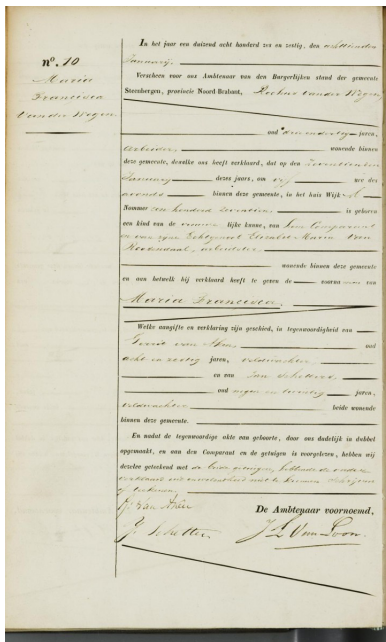 No. 10
Maria
Francisca
van der Wegen
In het jaar een duizend acht honderd zes en zestig, den achttienden
Januarij.
Verscheen voor ons Ambtenaar van den Burgerlijken stand der gemeente
Steenbergen, provincie Noord-Brabant, van der Wegen
oud jaren,
arbeider, wonende binnen
deze gemeente, dewelke ons heeft verklaard, dat op den zeventienden
Januarij dezes jaars, om vijf ure des
avonds binnen deze gemeente, in het huis Wijk A
Nommer een honderd zeventien is geboren
een kind van de vrouwelijke kunne, van den Comparant
en van zijne Echtgenoot Elizabeth Maria van
arbeidster
wonende binnen deze gemeente
en aan hetwelk hij verklaard heeft te geven de voornamen van
Maria Francisca.
Welke aangifte en verklaring zijn geschied, in tegenwoordigheid van
Gerrit van oud
acht en zestig jaren, veldwachter
en van Jan Schetters
oud negen en twintig jaren,
veldwachter beide wonende
binnen deze gemeente.
En nadat de tegenwoordige akte van geboorte, door ons dadelijk in dubbel
opgemaakt, en aan den Comparant en de getuigen is voorgelezen, hebben wij
dezelve geteekend met de beide getuigen, hebbende de ander
verklaard niet te kunnen schrijven
of teekenen.
G. van
De Ambtenaar voornoemd,
J. Schetters
J L Van Loon.